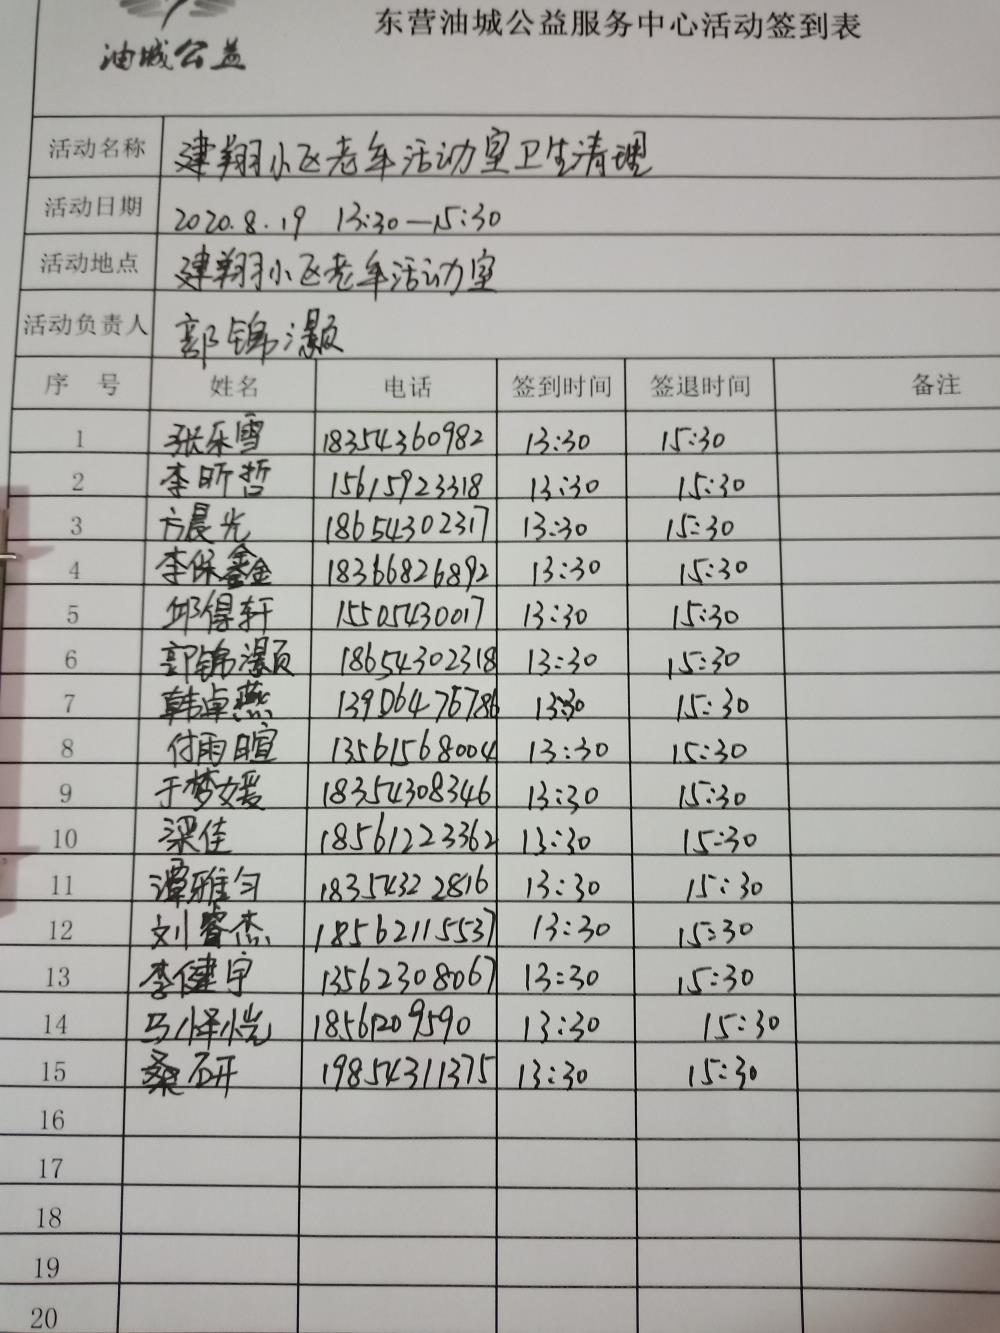 油城公益
东营油城公益服务中心活动签到表
活动名称 建翔小区老年活动室卫生清理
活动日期 2020.8.19 13:30—15:30
活动地点 建翔小区老年活动室
活动负责人 郭锦灏
序 号 姓名 电话 签到时间 签退时间 备注
1 张乐雪 18354360982 13:30 15:30
2 李昕哲 15615923318 13:30 15:30
3 方晨光 18654302317 13:30 15:30
4 李保鑫 18366826892 13:30 15:30
5 邱得轩 15505430017 13:30 15:30
6 郭锦灏 18654302318 13:30 15:30
7 韩卓燕 13906476786 13:30 15:30
8 付雨暄 13561568004 13:30 15:30
9 于梦媛 18354308346 13:30 15:30
10 梁佳 18561223362 13:30 15:30
11 谭雅匀 18354322816 13:30 15:30
12 刘睿杰 18562115537 13:30 15:30
13 李健宇 13562308067 13:30 15:30
14 马怿恺 18561209590 13:30 15:30
15 桑研 19854311375 13:30 15:30
16
17
18
19
20